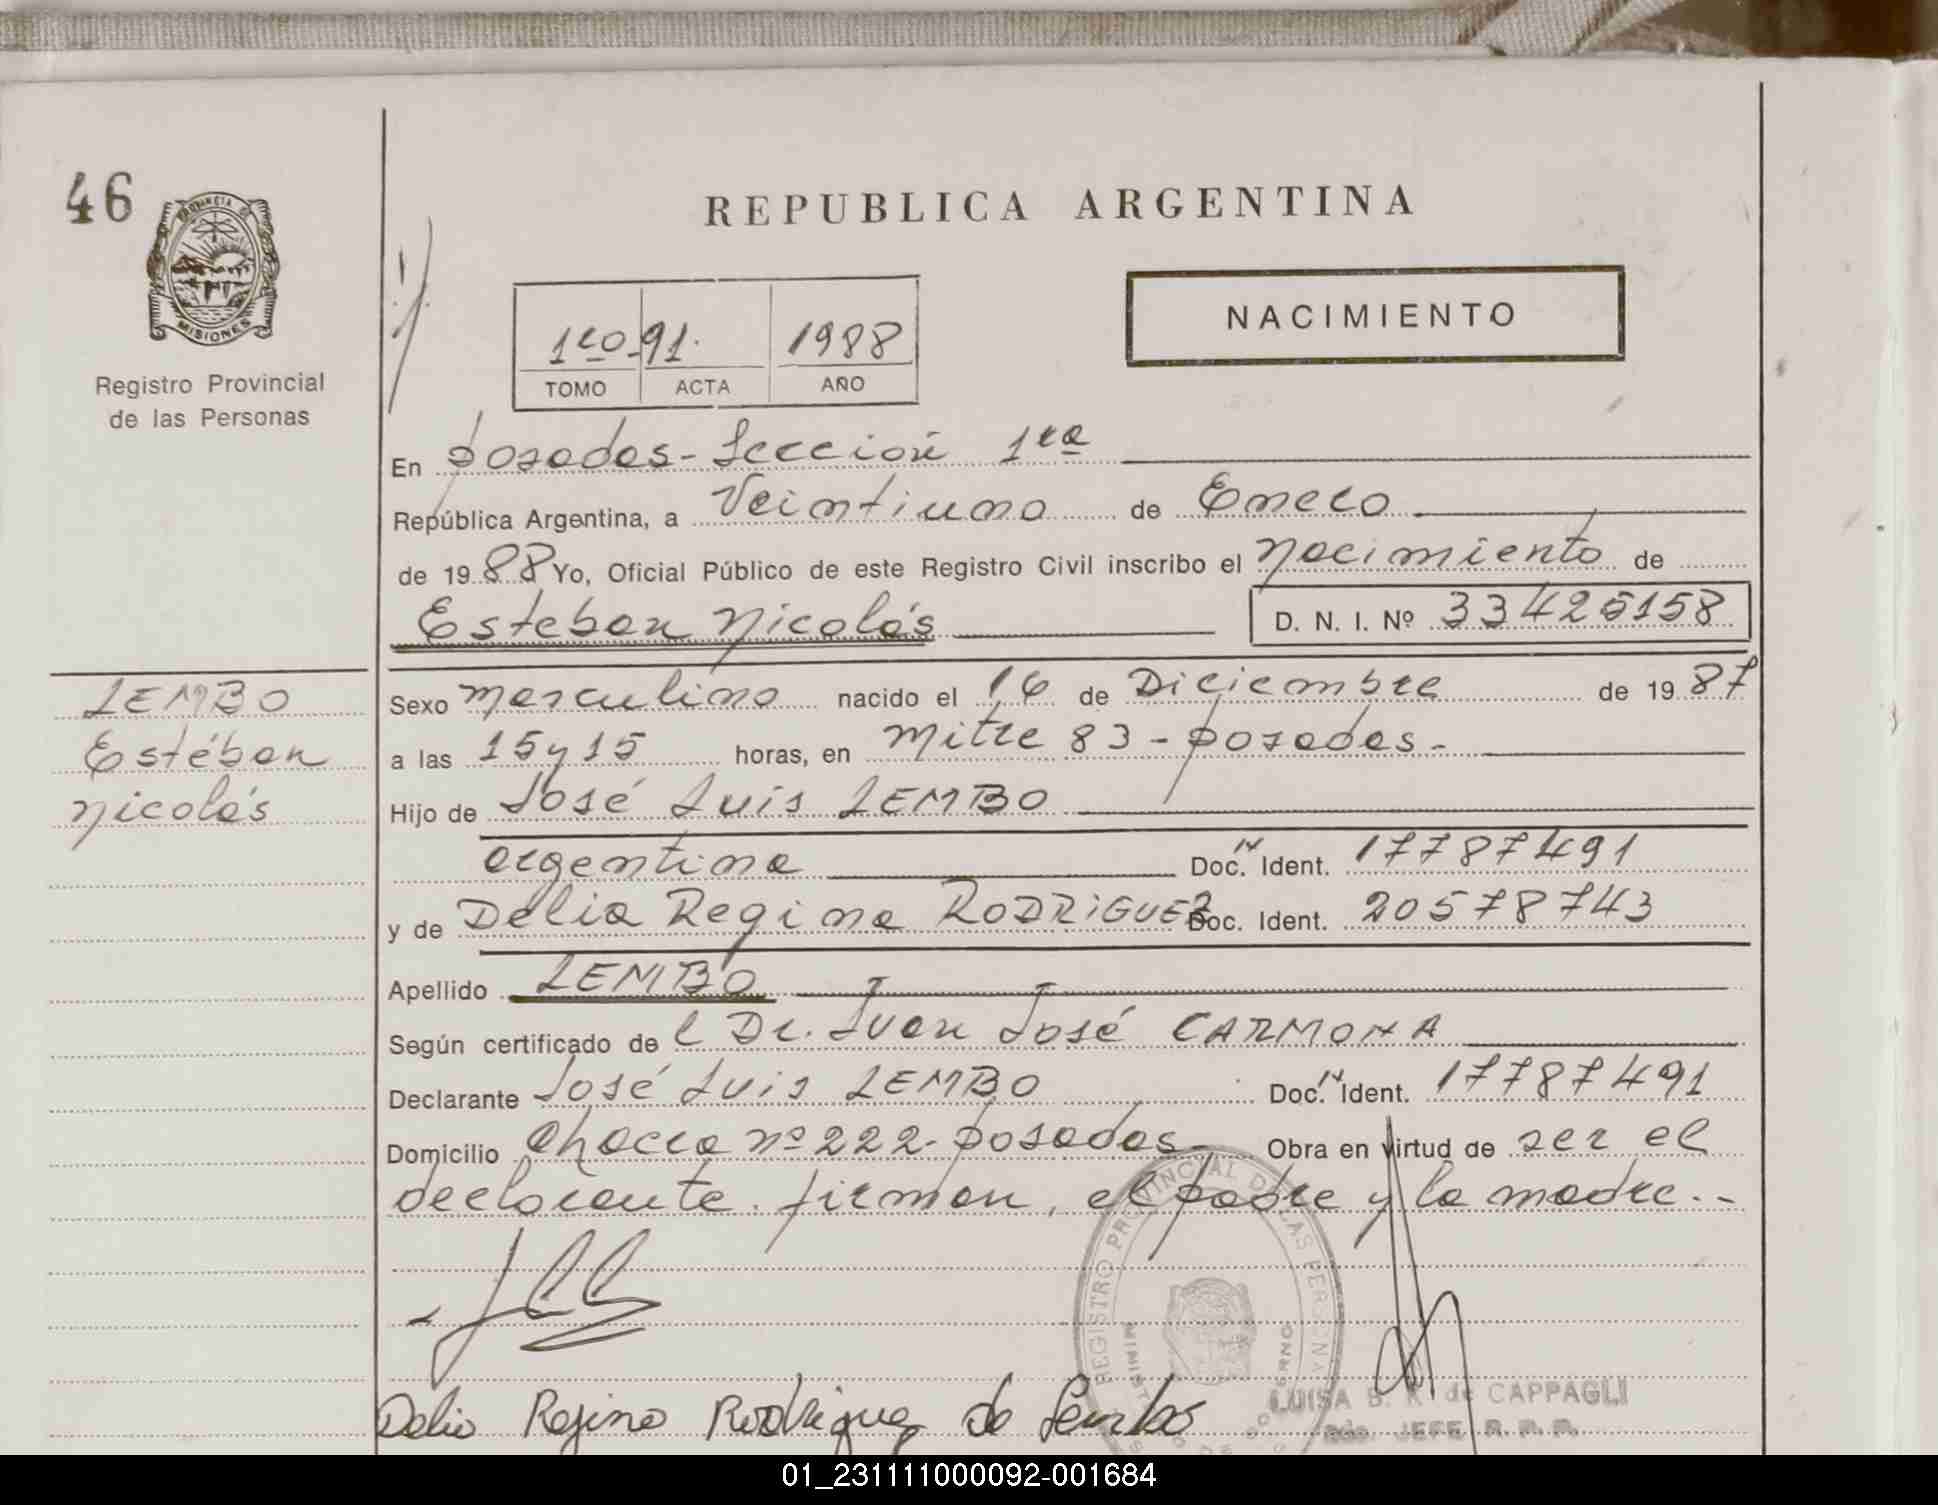 46
PROVINCIA DE
MISIONES
Registro Provincial
de las Personas
REPUBLICA ARGENTINA
NACIMIENTO
1ro. 91. 1988
TOMO ACTA AÑO
En Posadas - Sección 1ra
República Argentina, a Veintiuno de Enero
de 1988 Yo, Oficial Público de este Registro Civil inscribo el Nacimiento de
Esteban Nicolás D. N. I. Nº 33425158
LEMBO
Estéban
Nicolás
Sexo masculino nacido el 16 de Diciembre de 1987
a las 15 y 15 horas, en Mitre 83 - Posadas -
Hijo de José Luis LEMBO
argentina Doc. N Ident. 17787491
y de Delia Regina RODRIGUEZ Doc. Ident. 20578743
Apellido LEMBO
Según certificado del Dr. Juan José CARMONA
Declarante José Luis LEMBO Doc. N Ident. 17787491
Domicilio Chacra nº 222 - Posadas - Obra en virtud de ser el
declarante. firman, el padre y la madre. -
REGISTRO PROVINCIAL DE LAS PERSONAS
Delia Regina Rodriguez de Lembo
LUISA B. R. de CAPPAGLI
JEFE R. P. P.
01_231111000092-001684